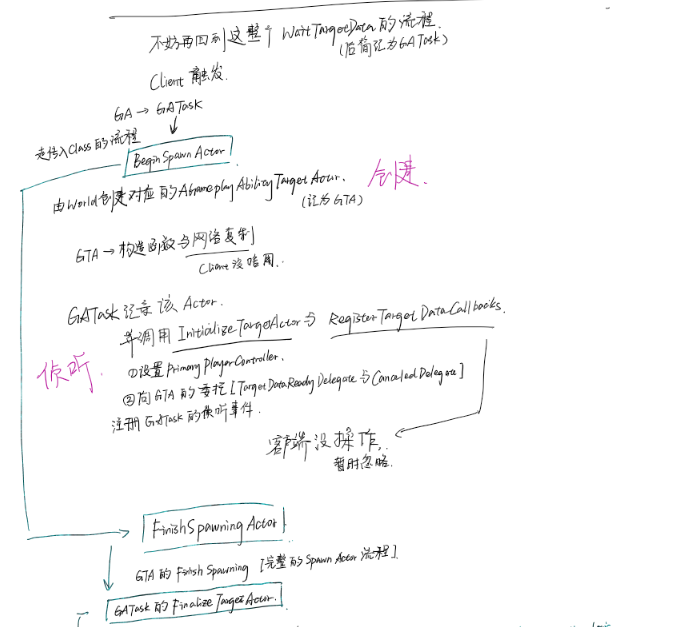 不妨再回到这整个 WaitTargetData的流程.
(后简记为GATask)
Client 触发.
GA → GATask
走传入Class的流程
BeginSpawnActor
由World创建对应的AGameplayAbilityTargetActor. 创建.
(记为GTA)
GTA → 构造函数与网络复制
Client没啥用.
GATask记录该Actor.
并调用 InitializeTargetActor与 RegisterTargetDataCallbacks.
侦听.
①设置PrimaryPlayerController.
②向GTA的委托[TargetDataReadyDelegate与CanceledDelegate]
注册GATask的侦听事件.
客户端没操作.
暂时忽略.
FinishSpawningActor
GTA的FinishSpawning [完整的SpawnActor流程].
GATask的FinalizeTargetActor.